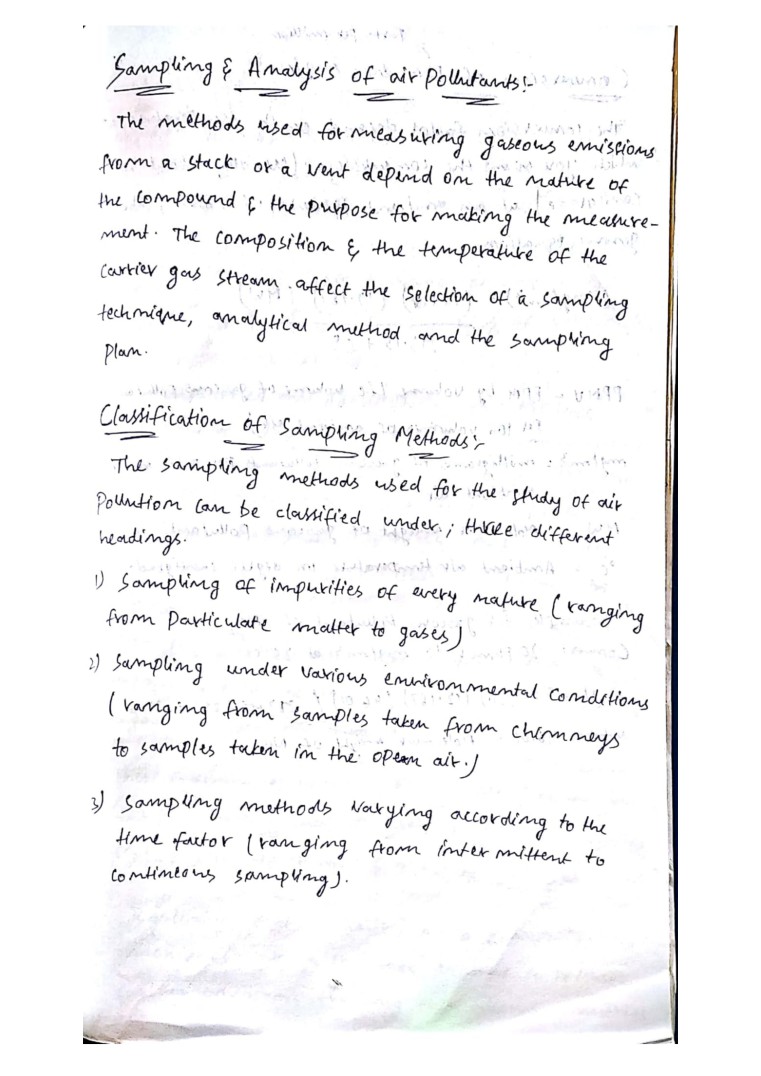 Sampling & Analysis of air Pollutants:-
The methods used for measuring gaseous emissions
from a stack or a vent depend on the nature of
the compound & the purpose for making the measure-
ment. The composition & the temperature of the
carrier gas stream affect the selection of a sampling
technique, analytical method and the sampling
plan.
Classification of Sampling Methods:-
The sampling methods used for the study of air
Pollution can be classified under; three different
headings.
1) Sampling of impurities of every nature (ranging
from Particulate matter to gases)
2) Sampling under various environmental conditions
(ranging from samples taken from chimneys
to samples taken in the open air.)
3) Sampling methods varying according to the
time factor (ranging from intermittent to
contineous sampling).